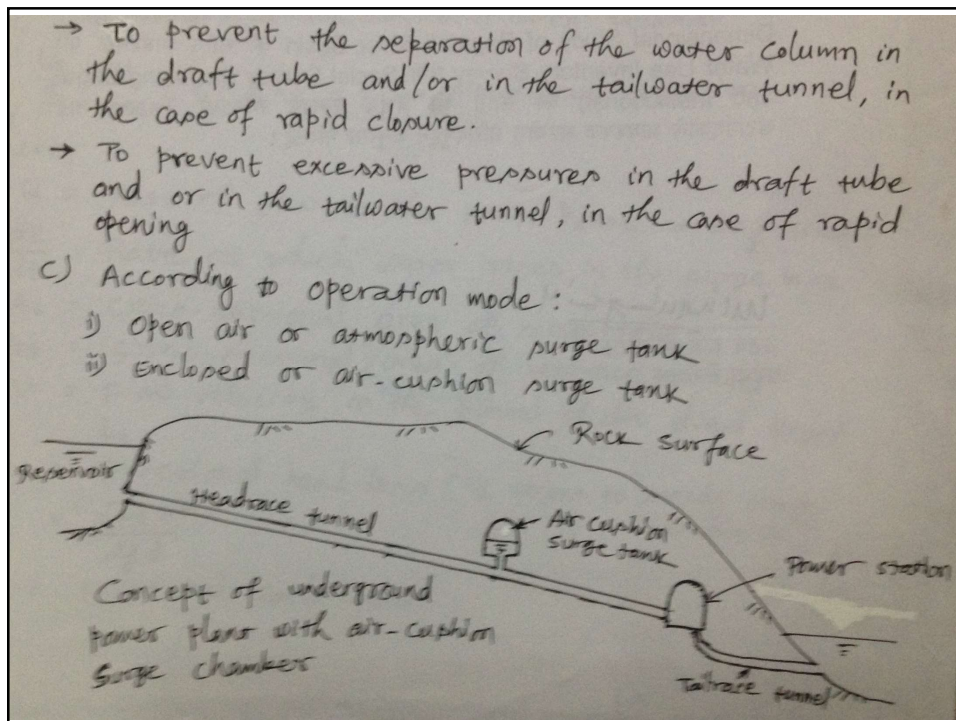 → To prevent the separation of the water column in
the draft tube and/or in the tailwater tunnel, in
the case of rapid closure.
→ To prevent excessive pressures in the draft tube
and or in the tailwater tunnel, in the case of rapid
opening
c) According to operation mode:
i) Open air or atmospheric surge tank
ii) Enclosed or air-cushion surge tank
Rock surface
Reservoir
Headrace tunnel
Air cushion
surge tank
Power station
Concept of underground
power plant with air-cushion
surge chamber
Tailrace tunnel